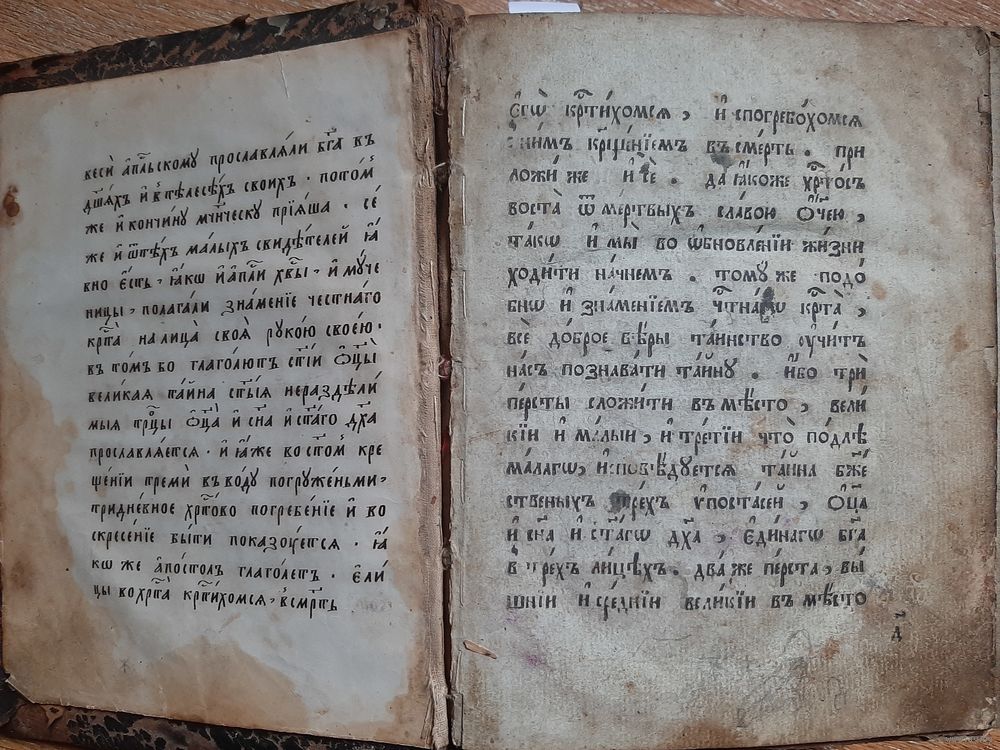 веси̏ а҆пⷭ҇льскому прославлѧ́ли бг҃а въ
дш҃а́хъ и҆ в тѣлесѣ́хъ своихъ . пото́м
же и҆ кончи́ну мч҃нческу прїѧ́ша . се́
же и҆ ѿ тѣ́хъ ма́лыхъ свидѣ́телей ꙗ҆́
вно є҆́сть , ꙗ҆́кѡ и҆ а҆пⷭ҇ли хв҃ы , и҆ му́че
ницы , полага́ли зна́менїе честна́го
крⷭ҇та̀ на лица̀ своѧ̀ руко́ю свое́ю .
въ то́мъ бо глаго́лютъ ст҃і́и ѻ҆ц҃ы̀
вели́каѧ та́йна ст҃ы́ѧ нераздѣ́ли
мыѧ трⷪ҇цы ѻ҆ц҃а̀ и҆ сн҃а и҆ ст҃а́го дх҃а
прославлѧ́етсѧ . и҆ ꙗ҆́же во ст҃о́м кре
ще́нїи треми̏ в во́ду погруже́ньми ,
тридне́вное хрⷭ҇то́во погребе́нїе и҆ во
скресе́нїе бы́ти показꙋ́етсѧ . ꙗ҆́
кѡ же а҆по́столъ глаго́летъ . є҆ли́
цы во хрⷭ҇та̀ крⷭ҇ти́хомсѧ , в сме́рть
є҆гѡ̀ крⷭ҇ти́хомсѧ , и҆ спогребо́хомсѧ
с ни́мъ крⷳ҇ще́нїемъ въ сме́рть . при
ложи́ же и҆ сѐ . да ꙗ҆́коже хрⷭ҇то́съ
воста̀ ѿ ме́ртвыхъ сла́вою ѻ҆́ч҃ею ,
та́кѡ и҆ мы̀ во ѡ҆бновле́нїи жи́зни
ходи́ти на́чнемъ . тому́же подо́
бнѡ и҆ зна́менїемъ чⷭ҇тна́гѡ крⷭ҇та̀ ,
всѐ до́брое вѣ́ры та́инство ᲂу҆чи́тъ
на́съ познава́ти та́йну . и҆́бо трѝ
пе́рсты сложи́ти въ мѣ́сто , вели́
кїи и҆ ма́лыи , и҆ тре́тїи что̀ по́длѣ
ма́лагѡ , и҆сповѣ́дуетсѧ та́йна бж҃е
ственныхъ трє́хъ ѵ҆поста́сей , ѻ҆ц҃а̀
и҆ сн҃а и҆ ст҃а́гѡ дх҃а , є҆ди́нагѡ бг҃а
в трє́хъ ли́цѣхъ . два́ же пе́рста , вы́
шнїи и҆ сре́днїи вели́кїи въ мѣ́сто
д҃